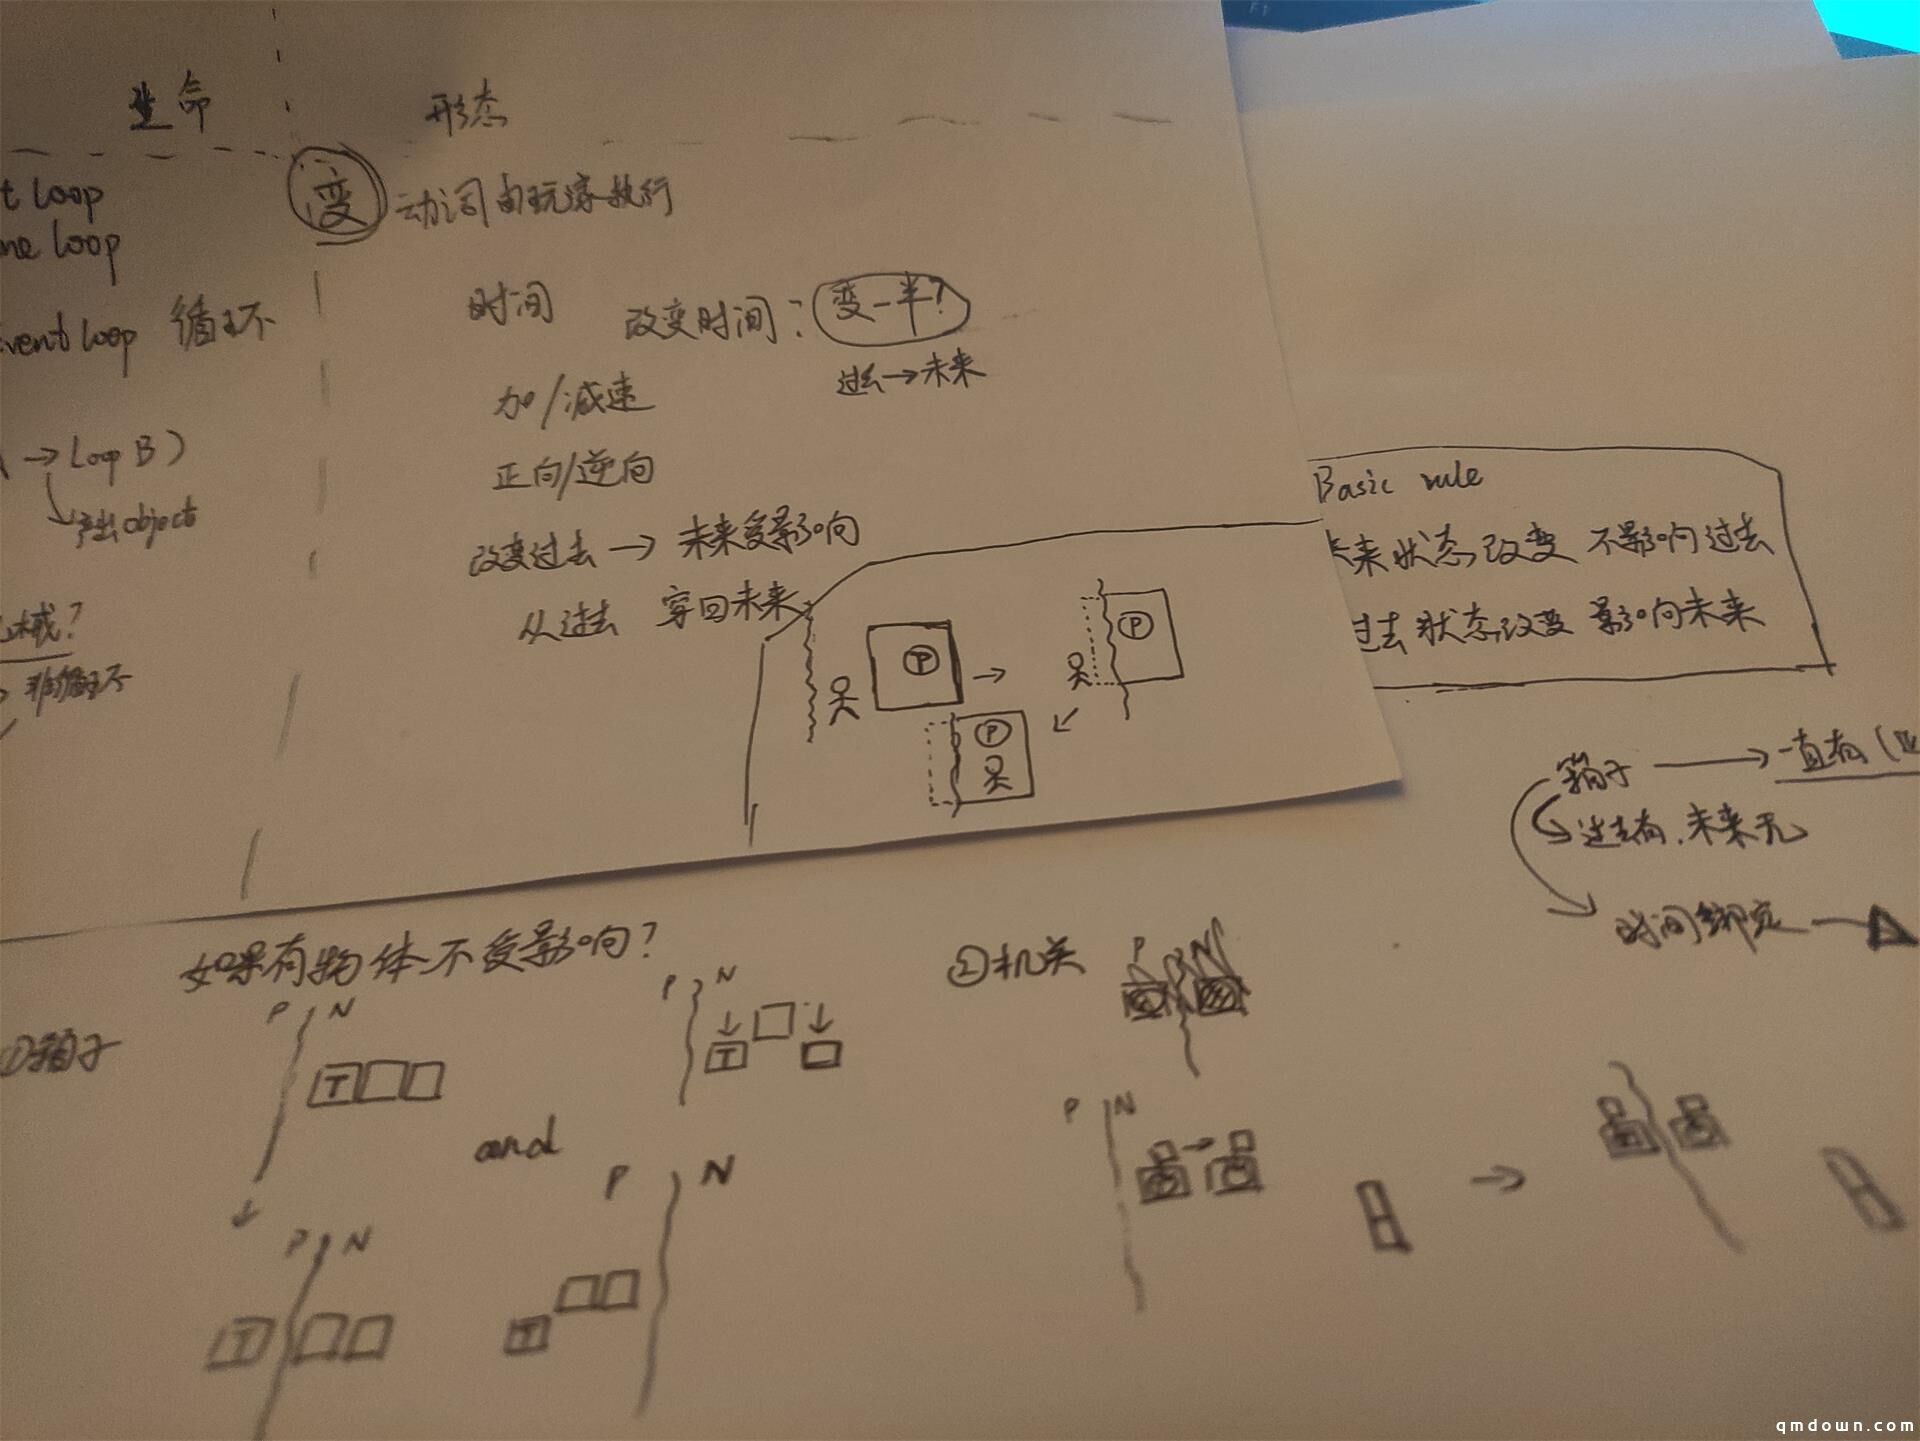 生命
形态
t Loop
ne Loop
变 动词由玩家执行
时间
改变时间：变一半？
过去→未来
vent Loop 循环
加/减速
正向/逆向
→ Loop B）
产出object
改变过去→未来受影响
从过去 穿回未来
械？
非循环
P
P
P
Basic rule
未来状态改变 不影响过去
过去状态改变 影响未来
箱子 → 一直有（
过去有.未来无
时间绑定
如果有物体不受影响？
①箱子
P N
T
P N
T
and
P N
T
P N
T
②机关
P N
P N
→
F1
qmdown.com